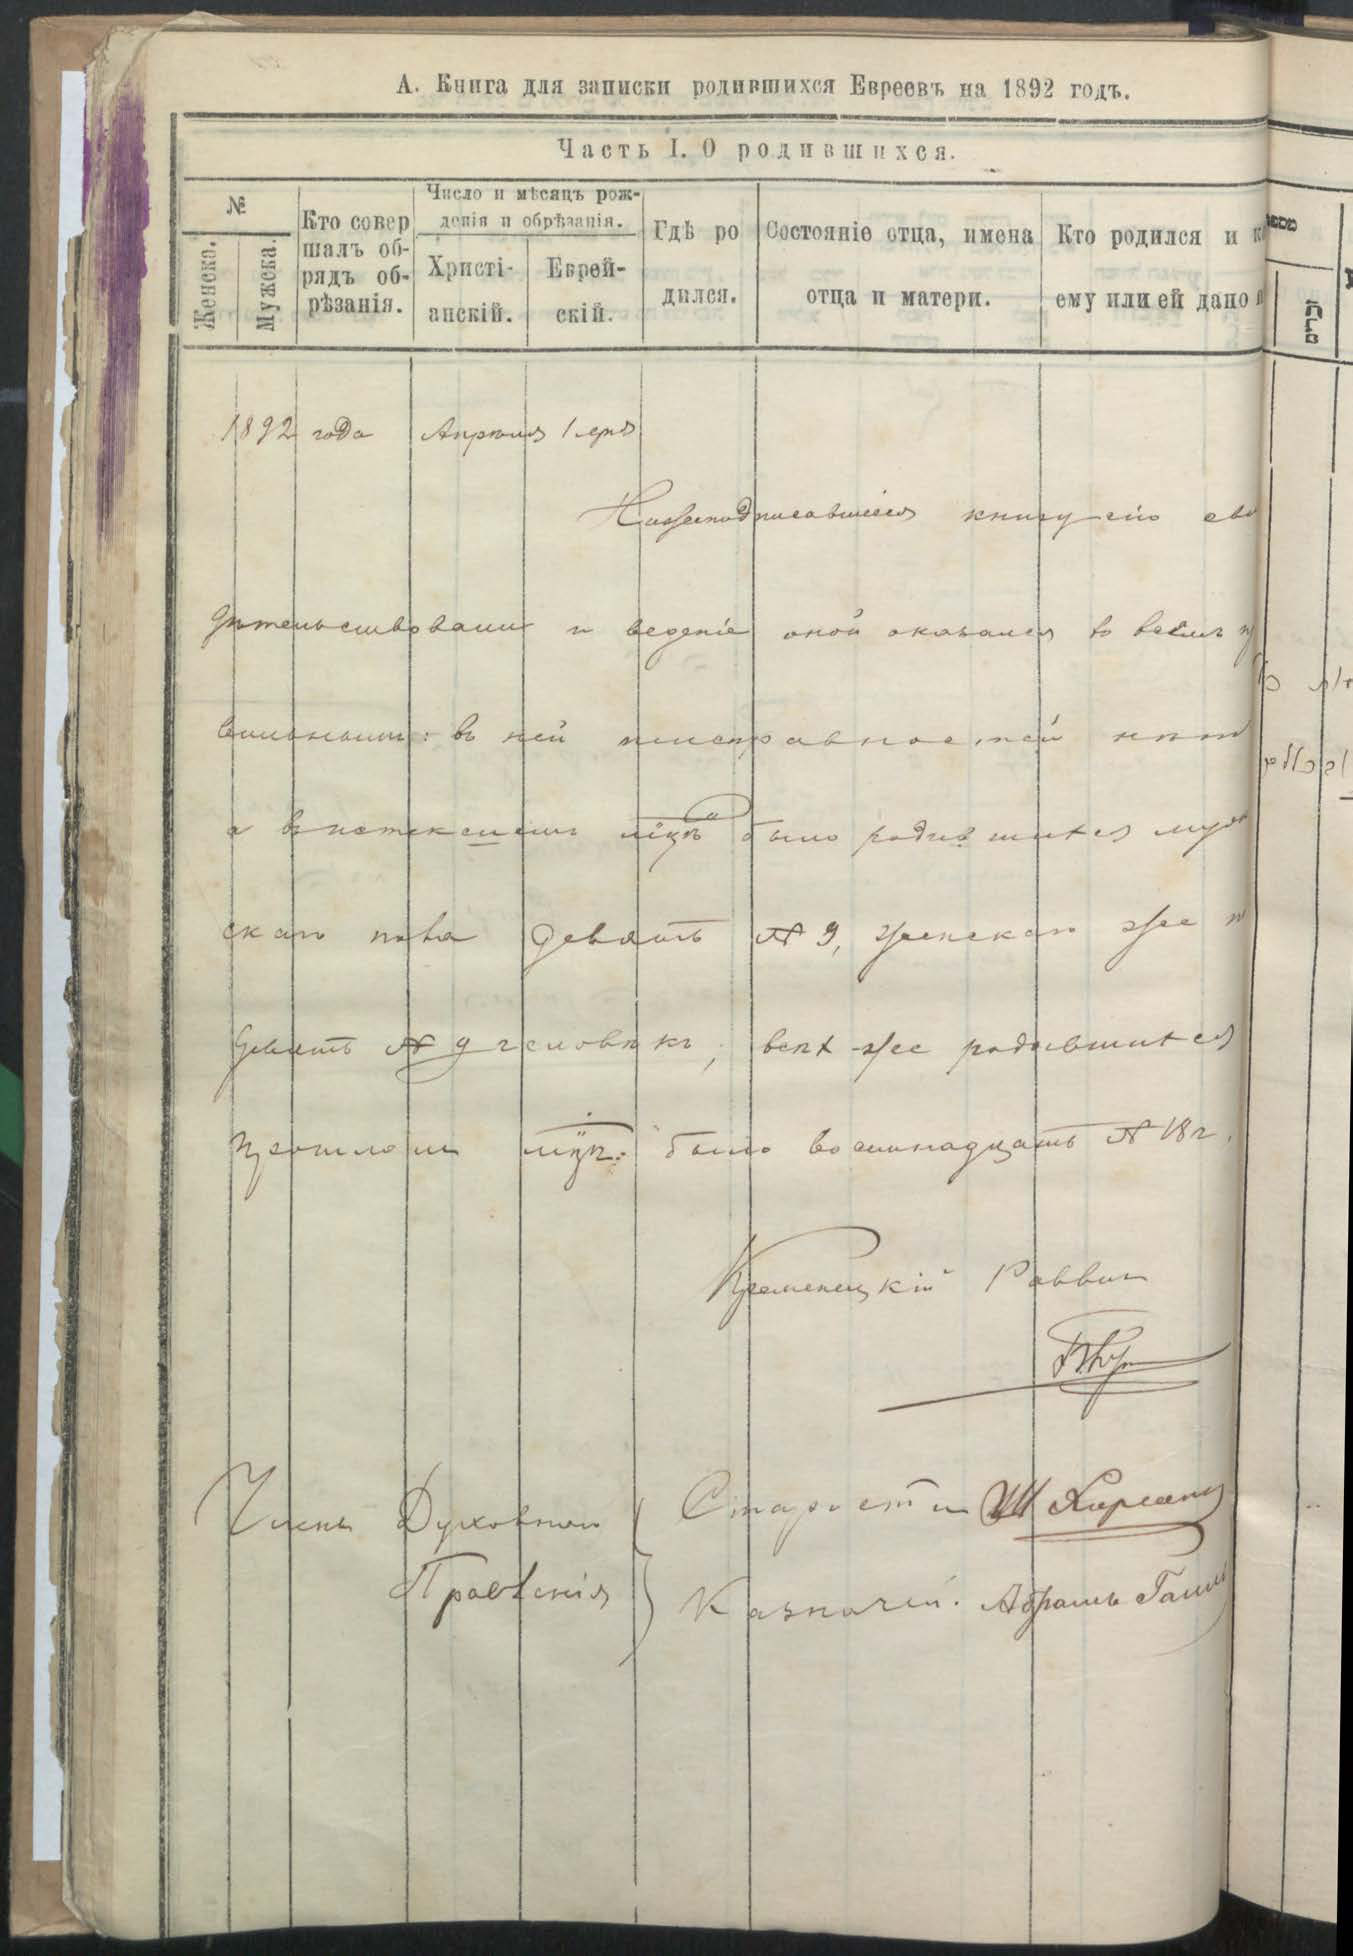 А. Книга для записки родившихся Евреевъ на 1892 годъ.
Часть I. О родившихся.
№
Женска.
Мужеска.
Кто совер
шалъ об-
рядъ об-
рѣзанія.
Число и мѣсяцъ рож-
денія и обрѣзанія.
Христі-
анскій.
Еврей-
скій.
Гдѣ ро
дился.
Состояніе отца, имена
отца и матери.
Кто родился и к
ему или ей дано
1892 года Апрѣля 1 дня
Нижеподписавшіеся книгу сію сви
дѣтельствовали и веденіе оной оказался во всемъ
въ ней неисправностей нѣтъ
а въ истекшемъ мцѣ было родившихся муж
скаго пола девять № 9, женскаго же п
девять № 9 человѣкъ, всѣхъ же родившихся
прошломъ мцѣ: было восемнадцать № 18 ч.
Кременецкій Раввинъ
Члены Духовнаго
Правленія
Староста Ш
Казначей. Абрамъ